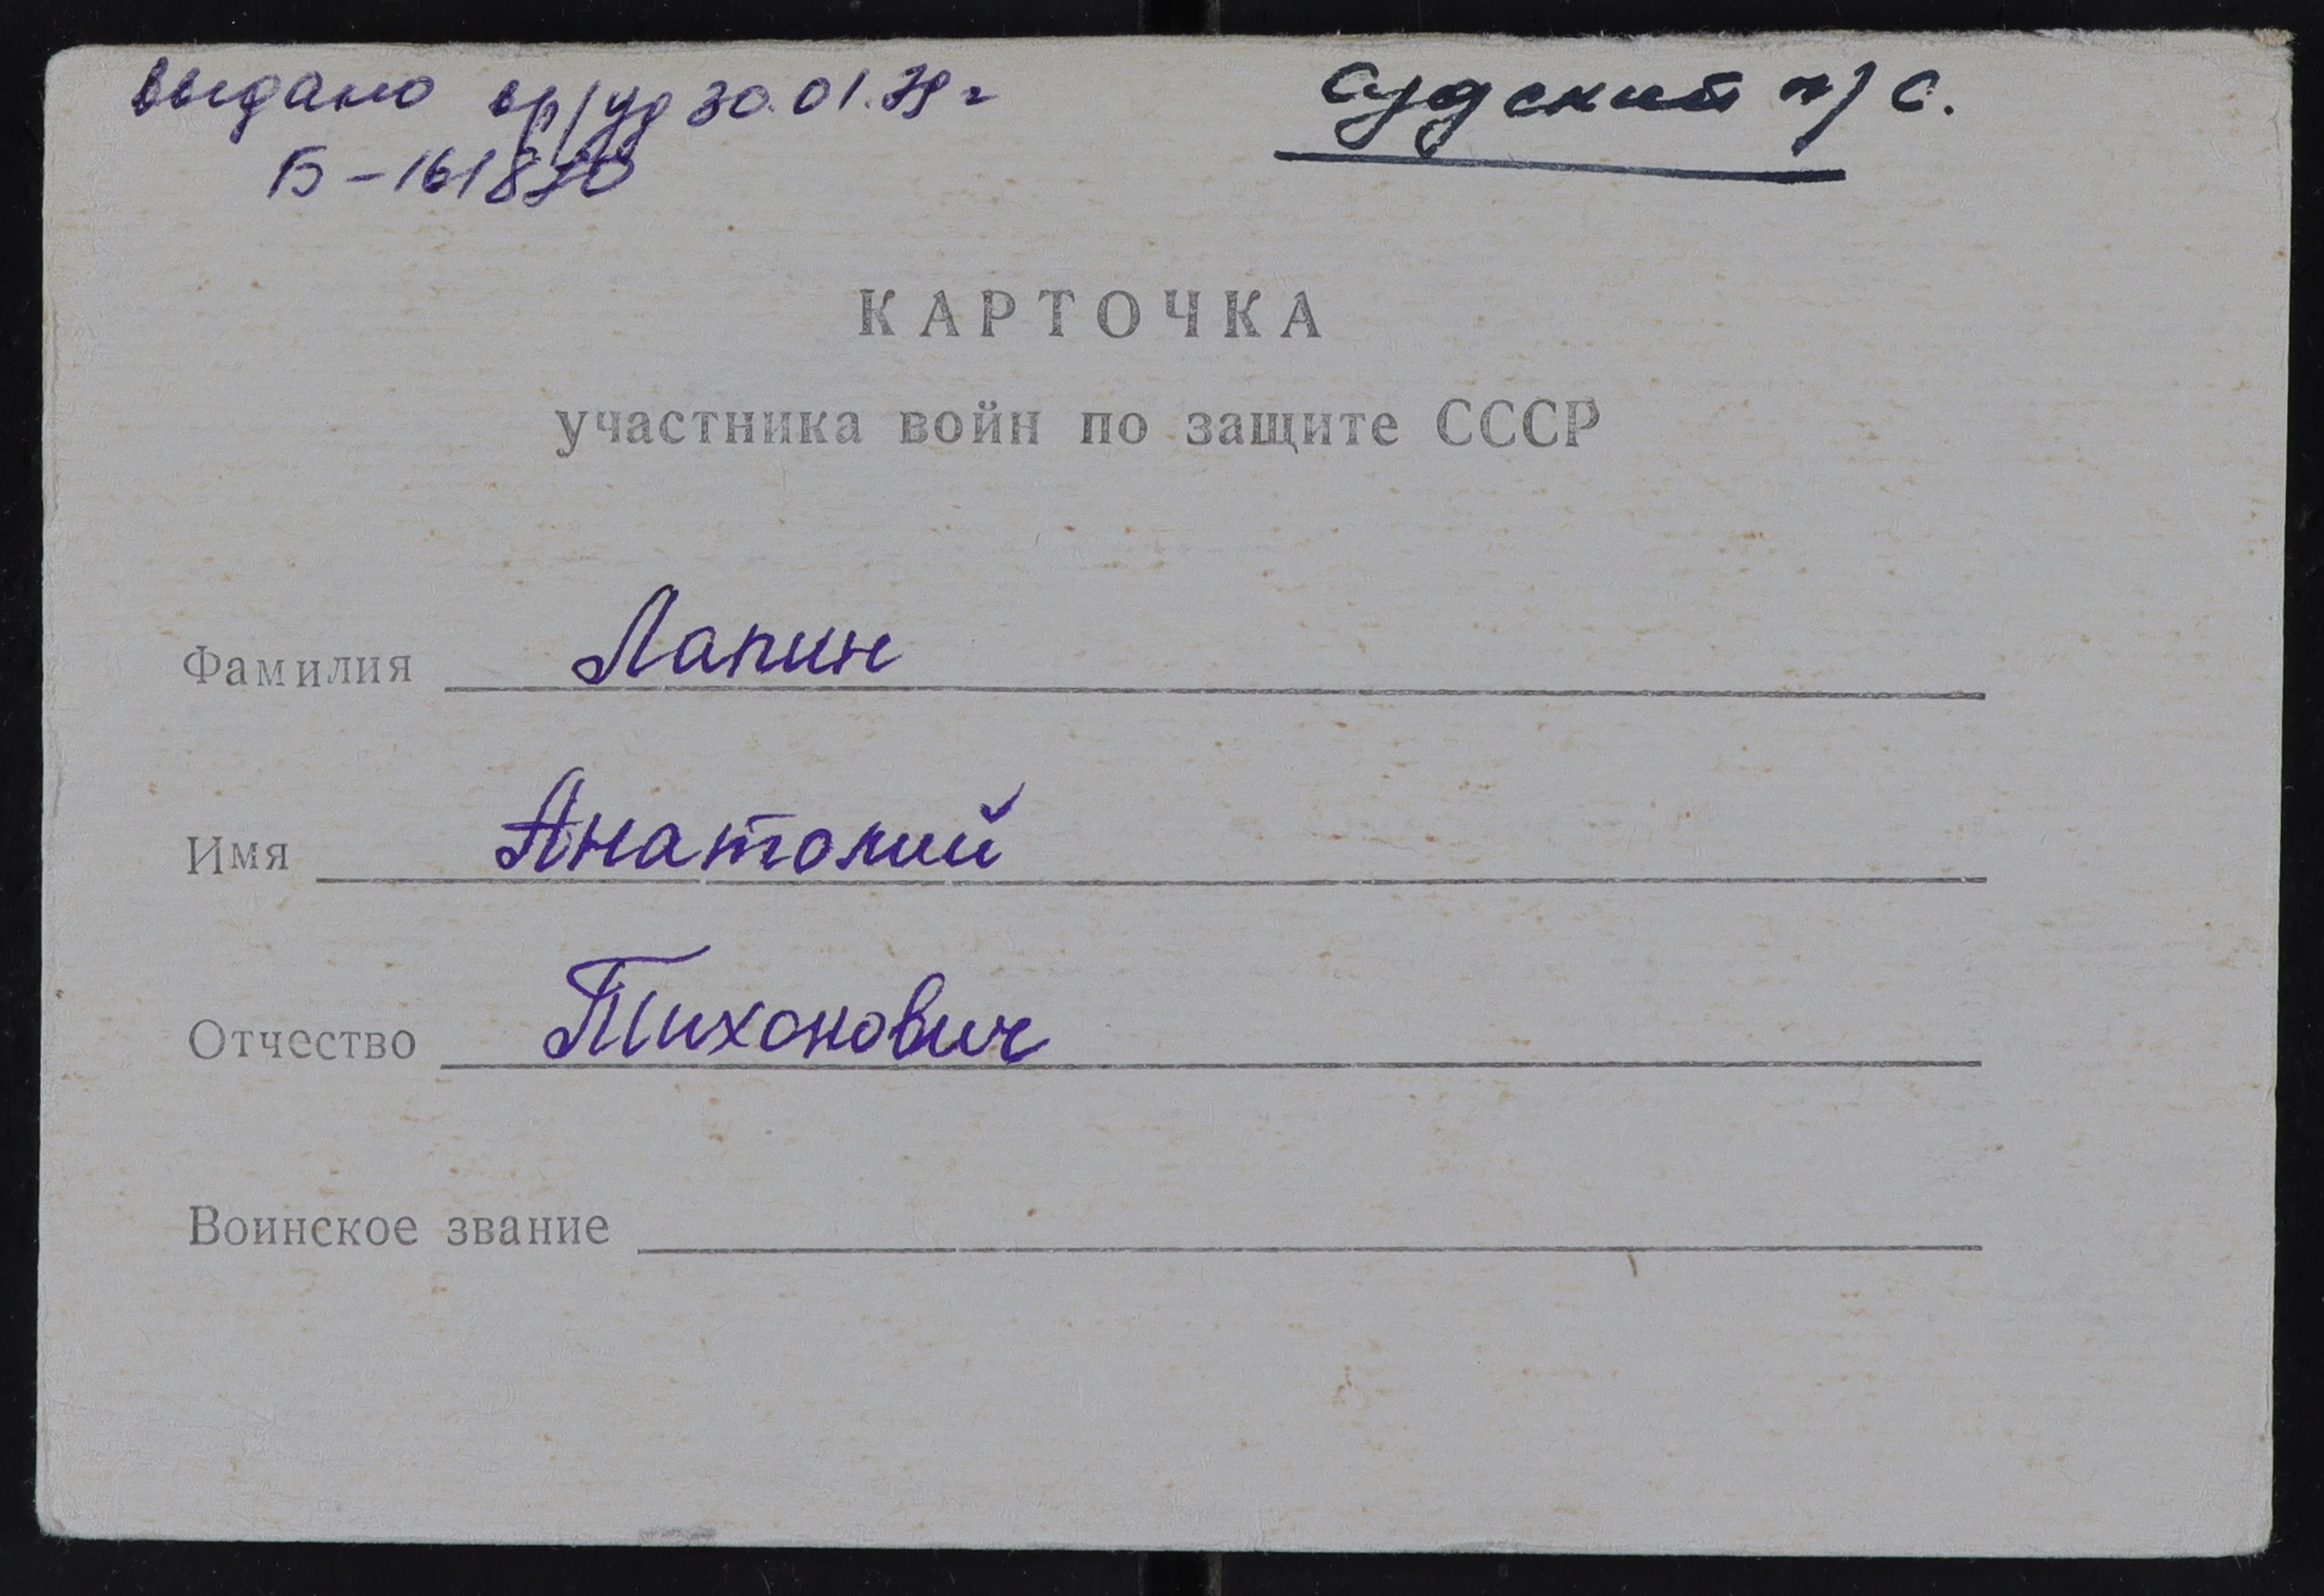 выдано вр/уд 30.01.79 г
Судский п/с.
Б-161820
КАРТОЧКА
участника войн по защите СССР
Фамилия Лапин
Имя Анатолий
Отчество Тихонович
Воинское звание